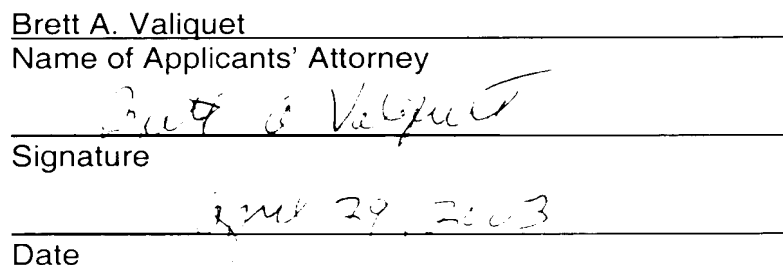 Brett A. Valiquet
Name of Applicants' Attorney
Brett A Valiquet
Signature
29, 2003
Date